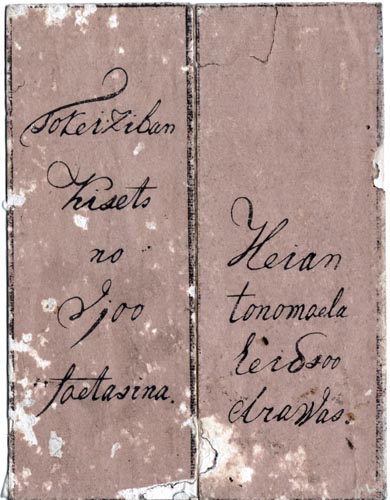 Tokeiziban
Kisets
no
Sjoo
faetasina.
Heian
tonomaela
keidsoo
drawas.